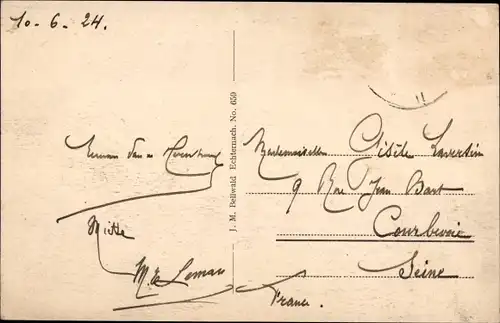 10-6-24.
Mitte
M. E. Leman
J. M. Bellwald Echternach. No. 659
Mademoiselle Gisèle Lavertin
9 Rue Jean Bart
Courbevoie
Seine
France.